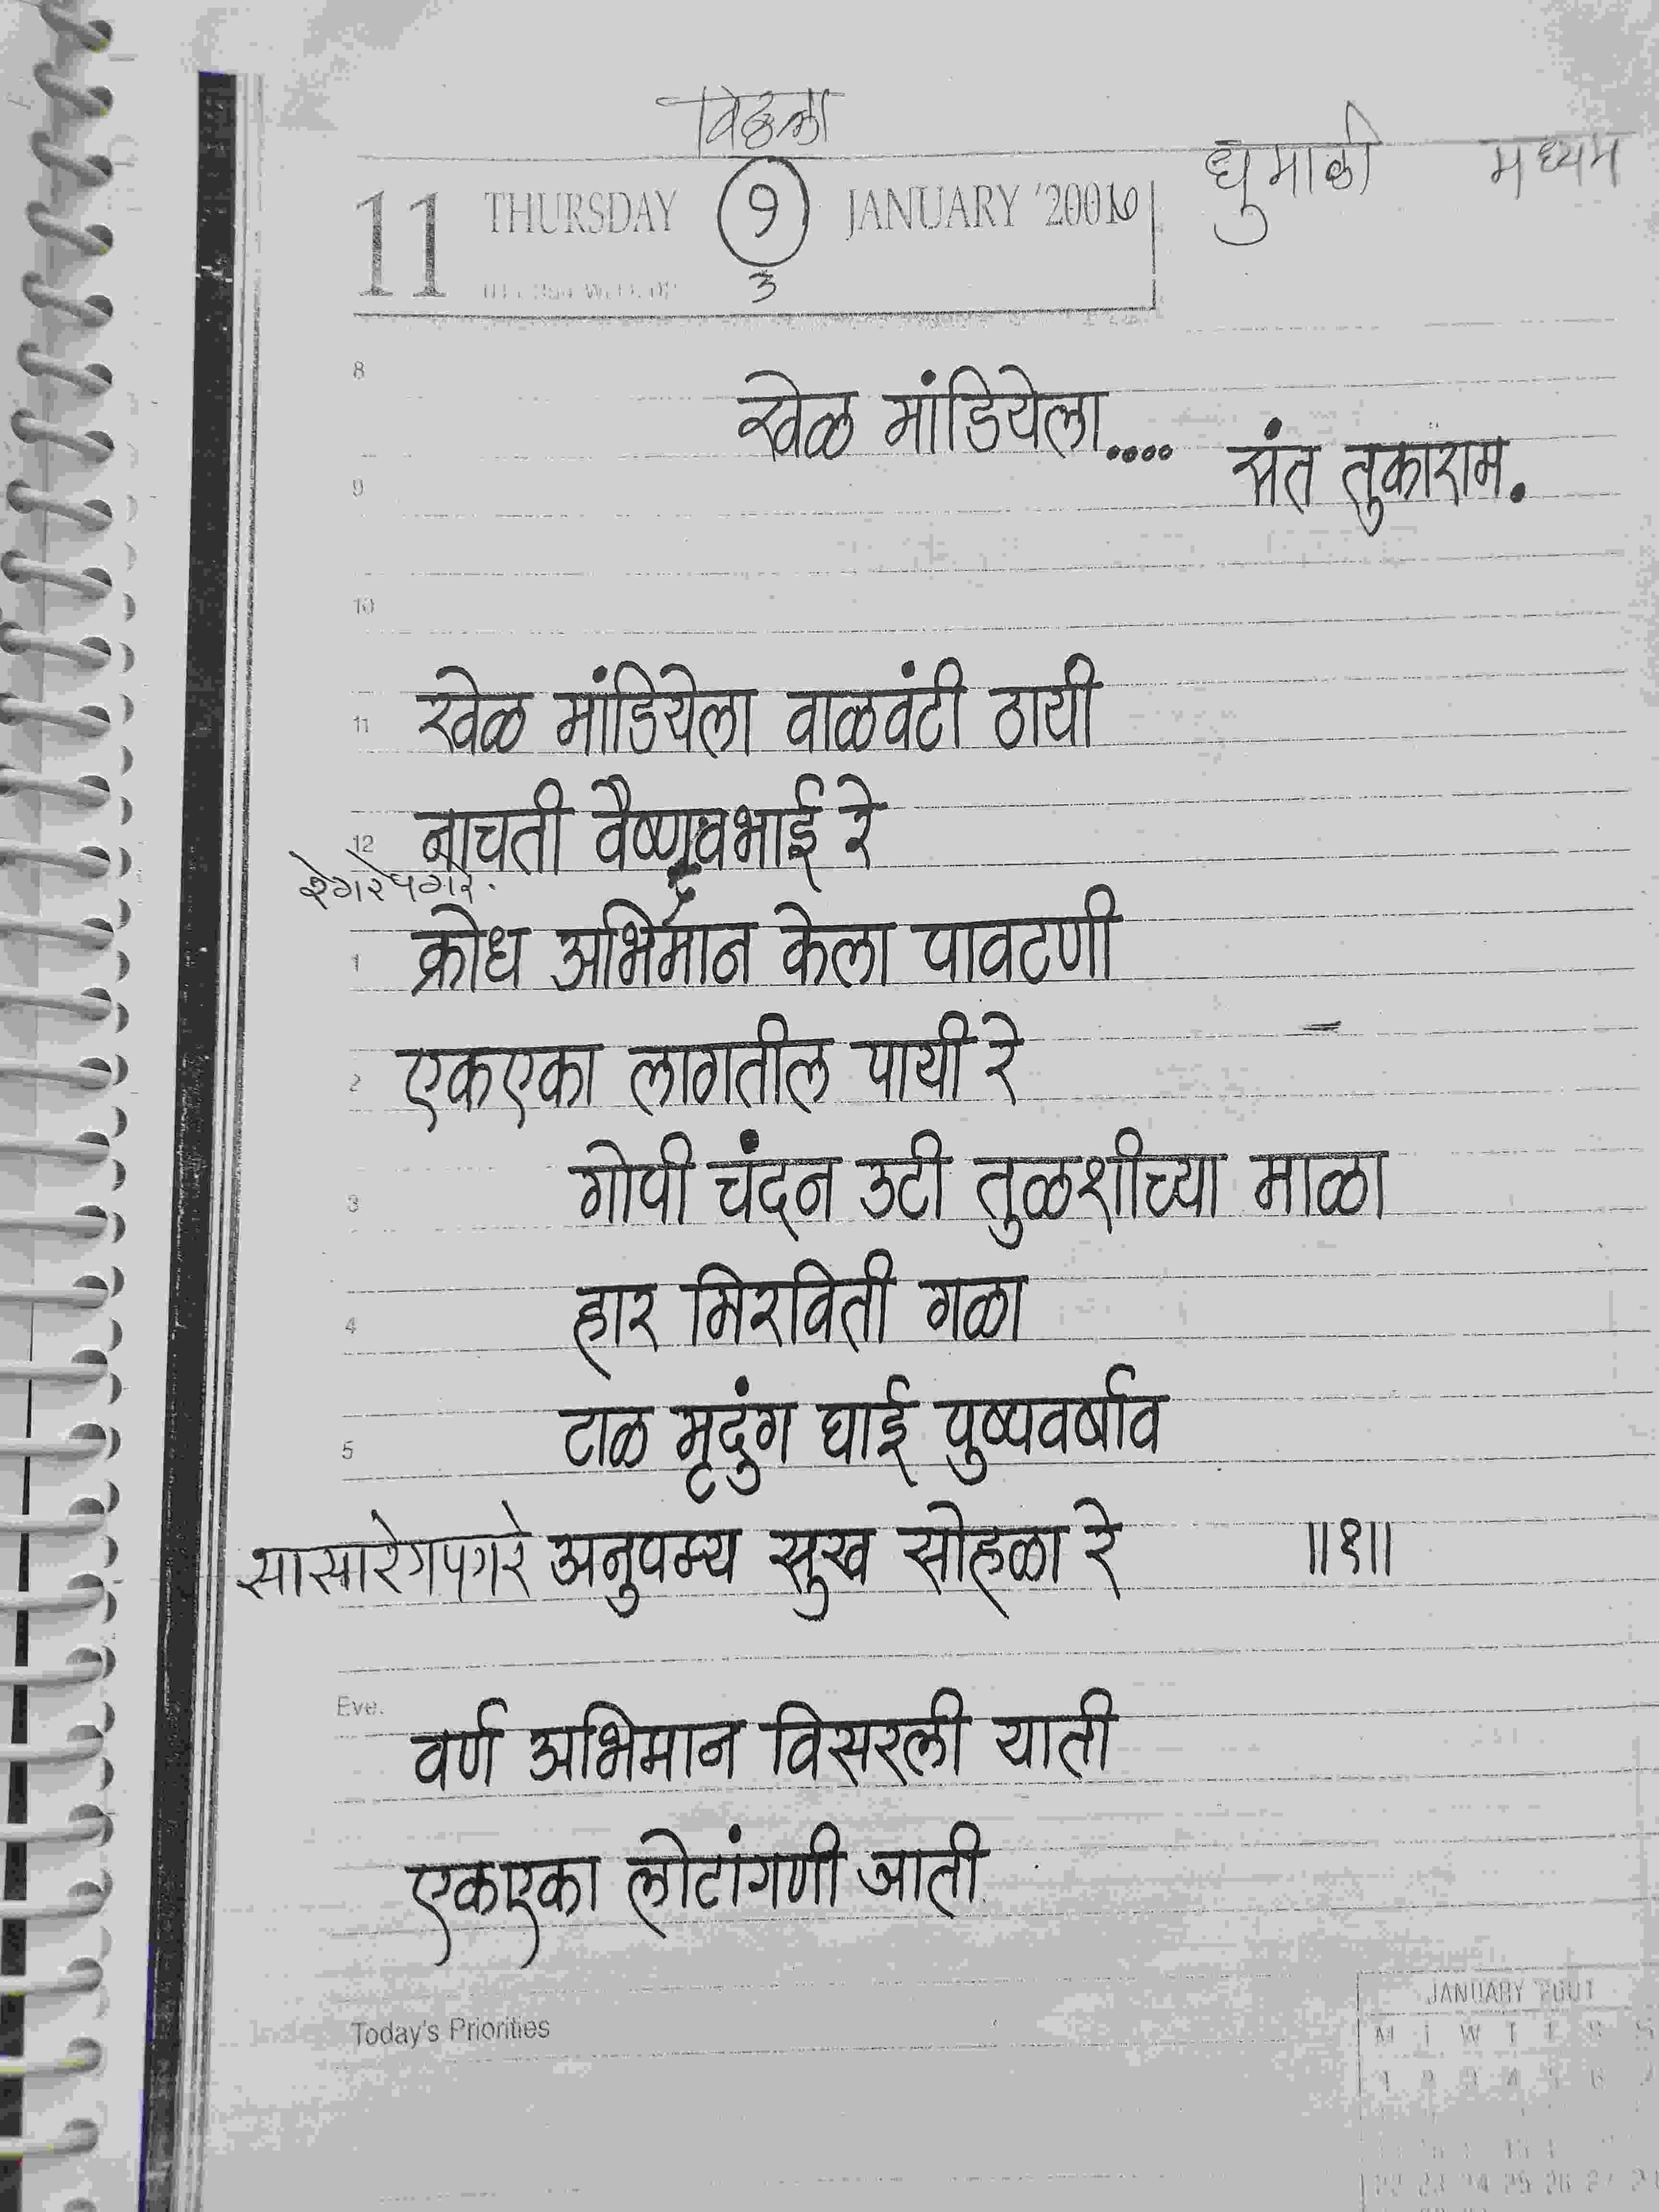 विठ्ठला
धुमाळी मध्यम
11 THURSDAY JANUARY '2001
9
3
8
खेळ मांडियेला....
संत तुकाराम.
9
10
11 खेळ मांडियेला वाळवंटी ठायी
12 नाचती वैष्णवभाई रे
रेगरेपगरे.
1 क्रोध अभिमान केला पावटणी
2 एकएका लागतील पायी रे
3 गोपी चंदन उटी तुळशीच्या माळा
4 हार मिरविती गळा
5 टाळ मृदुंग घाई पुष्पवर्षाव
सासारेगपगरे अनुपम्य सुख सोहळा रे ॥१॥
Eve.
वर्ण अभिमान विसरली याती
एकएका लोटांगणी जाती
Today's Priorities
JANUARY 2001